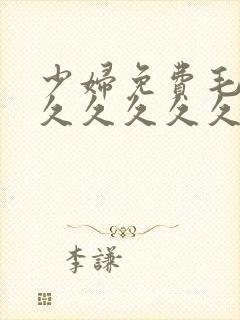 少婦免費毛
久久久久久
李謙